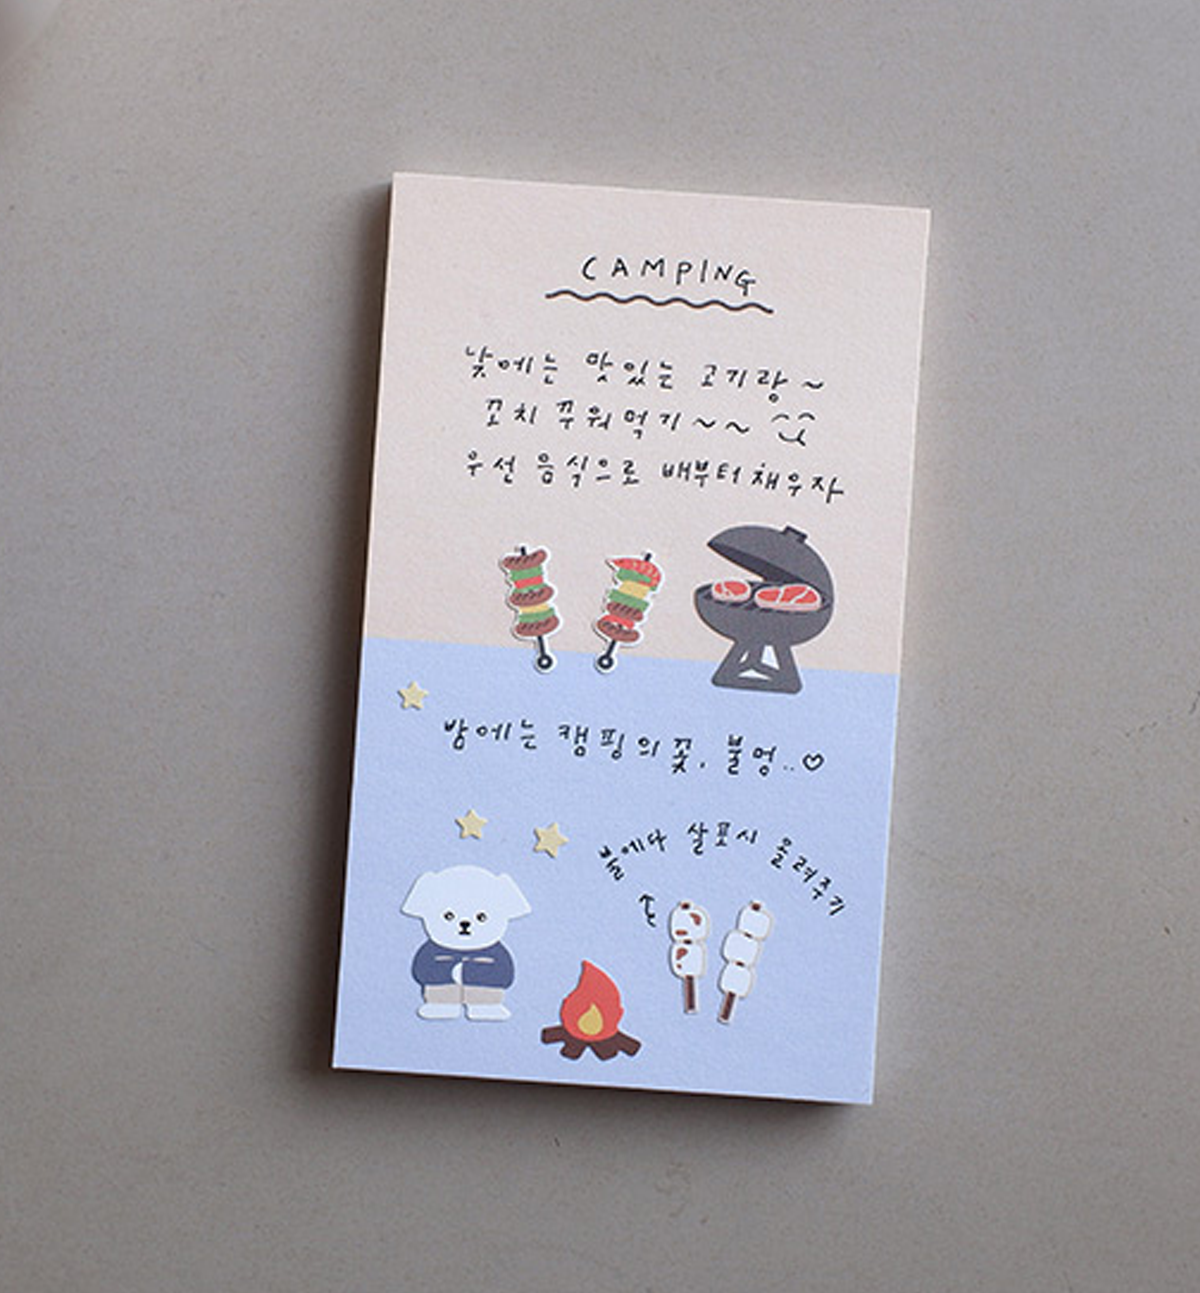 CAMPING
낮에는 맛있는 고기랑~
꼬치 꾸워먹기~~
우선 음식으로 배부터 채우자
밤에는 캠핑의 꽃, 불멍..♡
불에다 살포시 올려주기